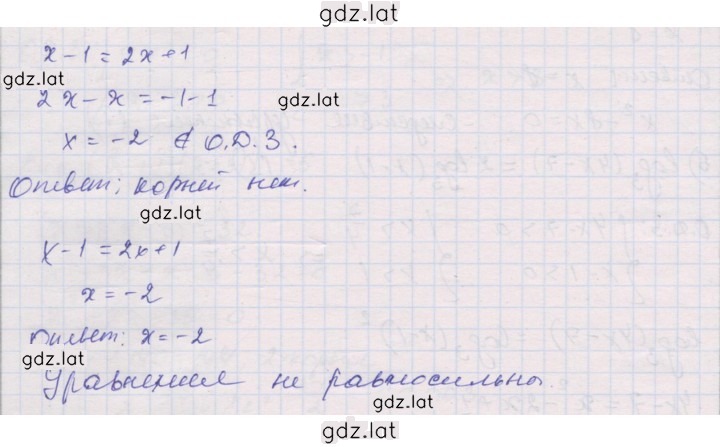 gdz.lat
x - 1 = 2x + 1
gdz.lat
2x - x = -1 - 1
gdz.lat
x = -2 ∉ О.Д.З.
Ответ: корней нет.
gdz.lat
x - 1 = 2x + 1
x = -2
Ответ: x = -2
gdz.lat
Уравнения не равносильны.
gdz.lat
gdz.lat